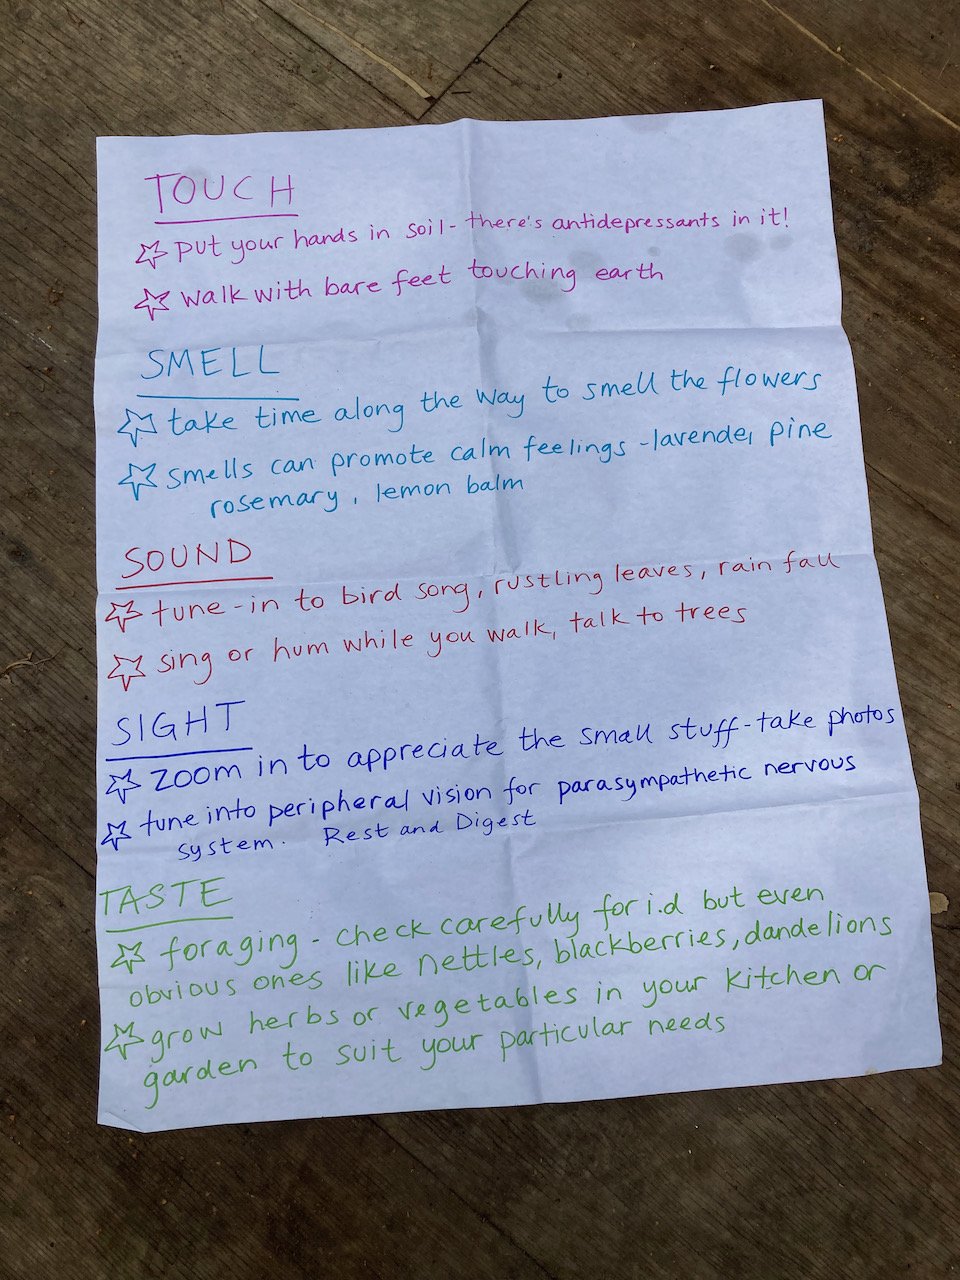 TOUCH
☆ put your hands in soil - there's antidepressants in it!
☆ walk with bare feet touching earth
SMELL
☆ take time along the way to smell the flowers
☆ smells can promote calm feelings - lavender, pine
rosemary, lemon balm
SOUND
☆ tune-in to bird song, rustling leaves, rain fall
☆ sing or hum while you walk, talk to trees
SIGHT
☆ zoom in to appreciate the small stuff - take photos
☆ tune into peripheral vision for parasympathetic nervous
system. Rest and Digest
TASTE
☆ foraging - check carefully for i.d but even
obvious ones like nettles, blackberries, dandelions
☆ grow herbs or vegetables in your kitchen or
garden to suit your particular needs